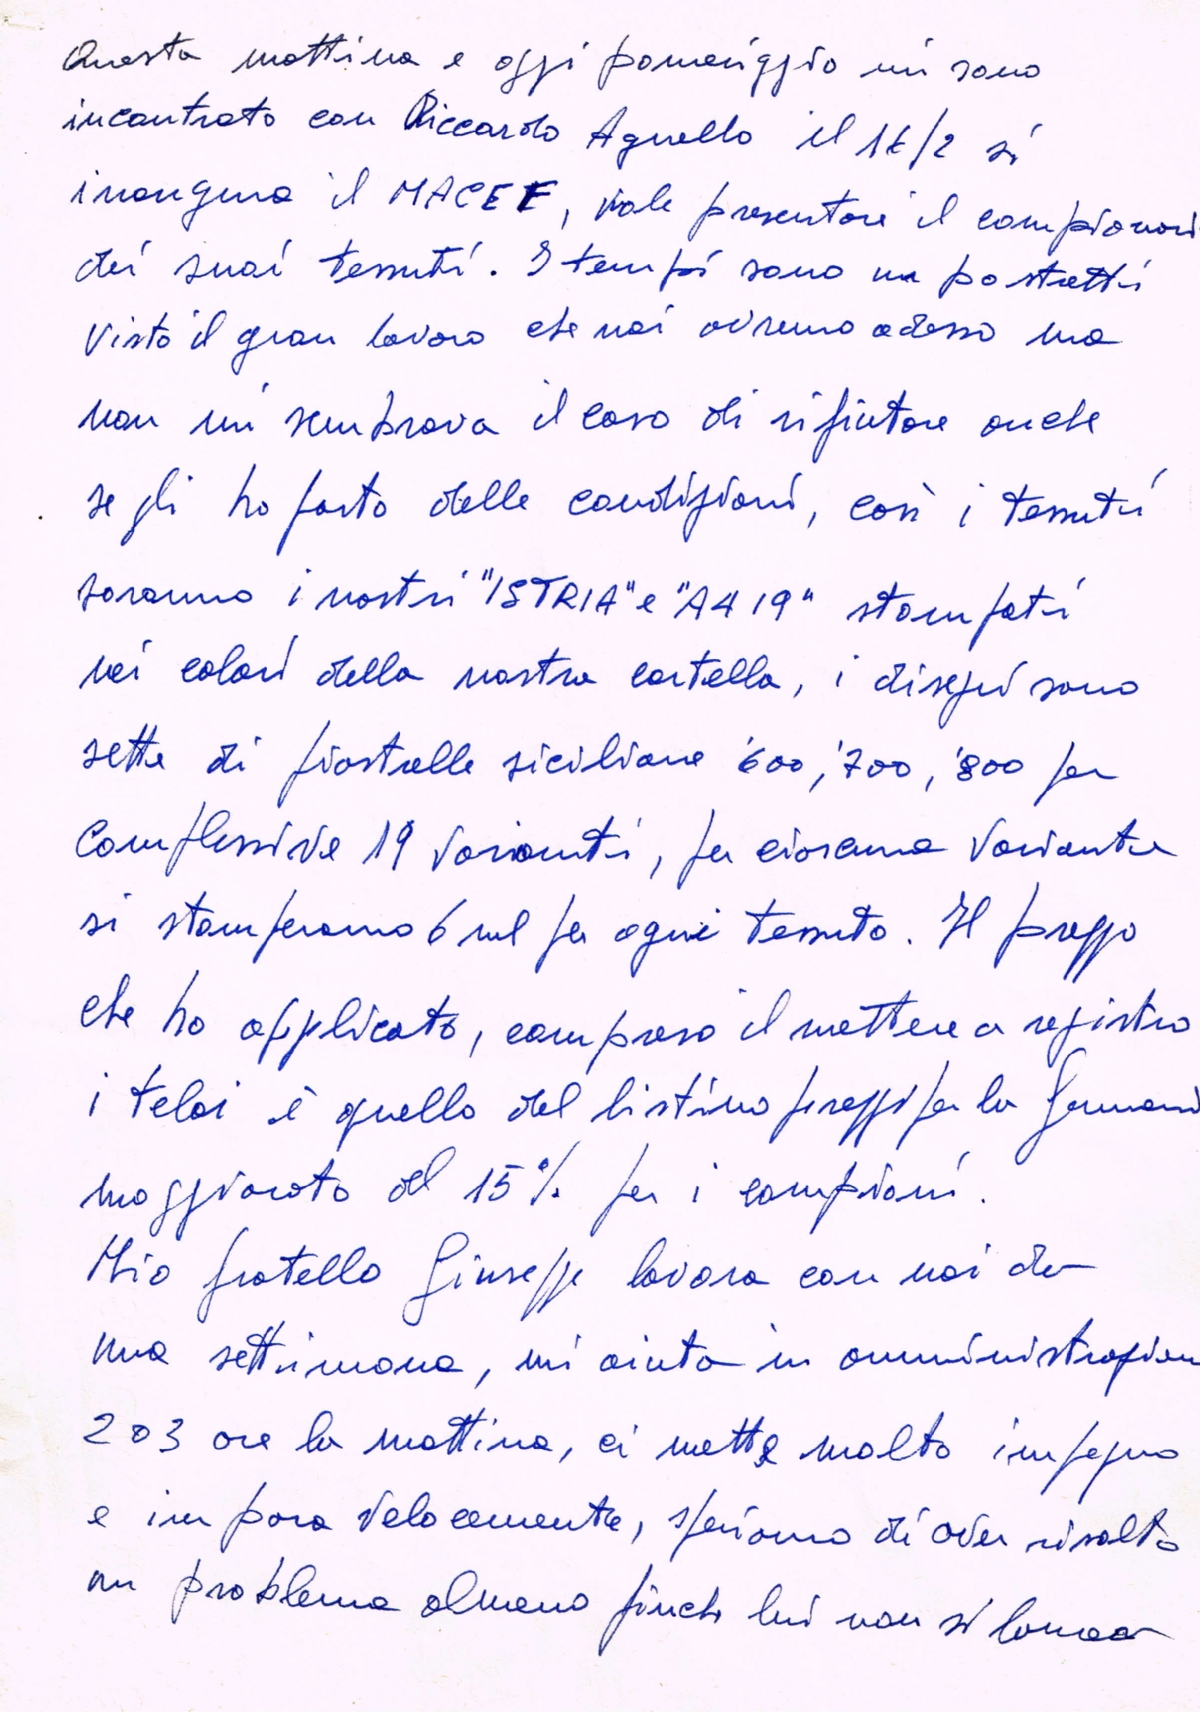 Questa mattina e oggi pomeriggio mi sono
incontrato con Riccardo Agnello il 1t/2 si
inaugura il MACEF, vole presentare il campionari
dei suoi tessuti. I tempi sono un po stretti
visto il gran lavoro che noi avremo adesso ma
non mi sembrava il caso di rifiutare anche
se gli ho posto delle condizioni, così i tessuti
saranno i nostri "ISTRIA" e "A419" stampati
nei colori della nostra cartella, i disegni sono
sette di piastrelle siciliane '600, '700, '800 per
complessive 19 varianti, per ciascuna variante
si stamperanno 6 ml per ogni tessuto. Il prezzo
che ho applicato, compreso il mettere a registro
i telai è quello del listino prezzi per la Germani
maggiorato del 15% per i campioni.
Mio fratello Giuseppe lavora con noi da
una settimana, mi aiuta in amministrazion
2 o 3 ore la mattina, ci mette molto impegno
e impara velocemente, speriamo di aver risolto
un problema almeno finche lui non si laurea